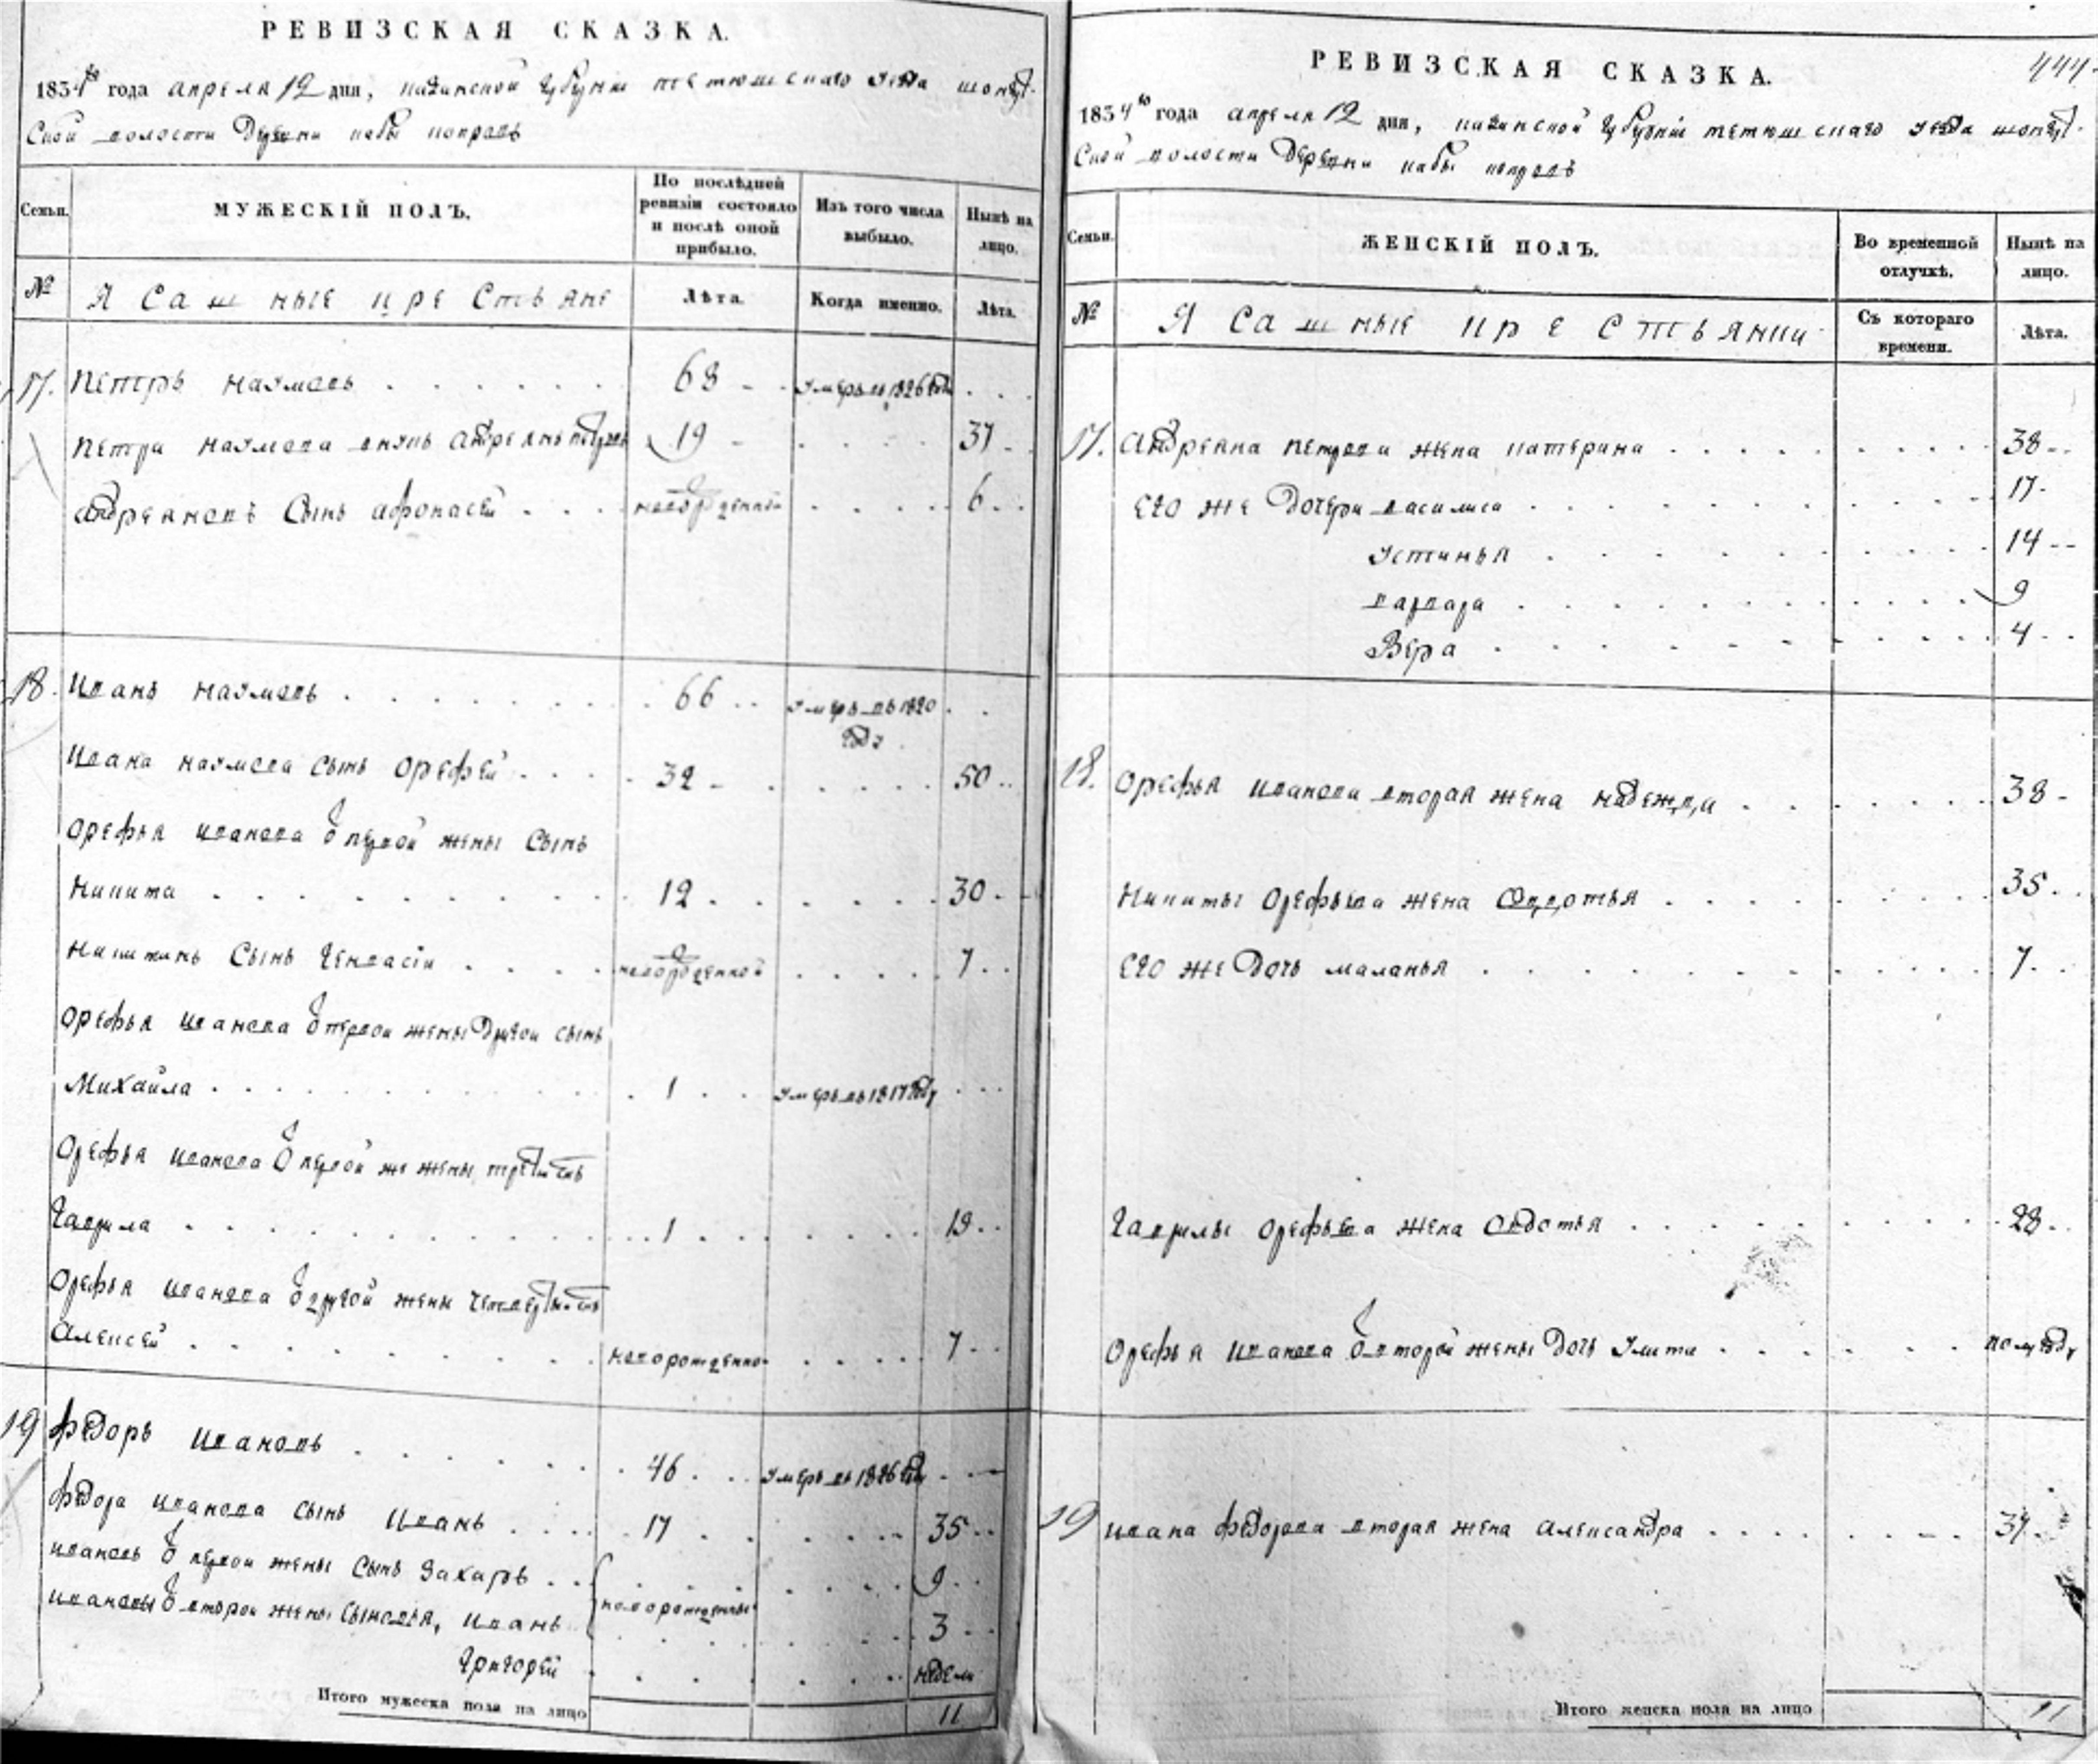 РЕВИЗСКАЯ СКАЗКА.
1834го года апреля 12 дня, казанской губернии тетюшскаго уезда шонгут-
ской волости деревни кабы копровъ
Семьи. МУЖЕСКІЙ ПОЛЪ. По послѣдней ревизіи состояло и послѣ оной прибыло. Изъ того числа выбыло. Нынѣ на лицо.
№ Ясашные крестьяне Лѣта. Когда именно. Лѣта.
17. Петръ наумовъ 68 умеръ въ 1826 году
Петра наумова внукъ андреянъ петровъ 19 37
андреяновъ сынъ афонасей новорожденной 6
18. Иванъ наумовъ 66 умеръ въ 1820
году
Ивана наумова сынъ орефей 32 50
орефья иванова от первой жены сынъ
никита 12 30
никитинъ сынъ 7
новорожденной
орефья иванова от первой жены другой сынъ
Михайла 1 умеръ въ 1817 году
орефья иванова от первой же жены третий сынъ
Гаврила 1 19
орефья иванова от другой жены четвертый сынъ
алексей новорожденно 7
19 федоръ ивановъ 46 умеръ въ 1826 году
федора иванова сынъ иванъ 17 35
ивановъ от первой жены сынъ захаръ 9
новорожденные
ивановы от второй жены сыновья, иванъ 3
григорей недели
Итого мужеска пола на лицо 11
444.
РЕВИЗСКАЯ СКАЗКА.
1834го года апреля 12 дня, казанской губернии тетюшскаго уезда шонгут-
ской волости деревни кабы копровъ
Семьи. ЖЕНСКІЙ ПОЛЪ. Во временной отлучкѣ. Нынѣ на лицо.
№ Ясашные крестьянки Съ котораго времени. Лѣта.
17. андреяна петрова жена катерина 38
его же дочери василиса 17
устинья 14
варвара 9
Вера 4
18. орефья иванова вторая жена надежда 38
никиты орефьева жена овдотья 35
его же дочь маланья 7
гаврилы орефьева жена овдотья 28
орефья иванова от второй жены дочь улита полугоду
19 ивана федорова вторая жена александра 34
Итого женска пола на лицо 11